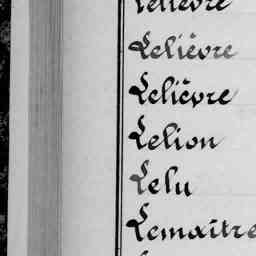 Lelièvre
Lelièvre
Lelièvre
Lelion
Lelu
Lemaître